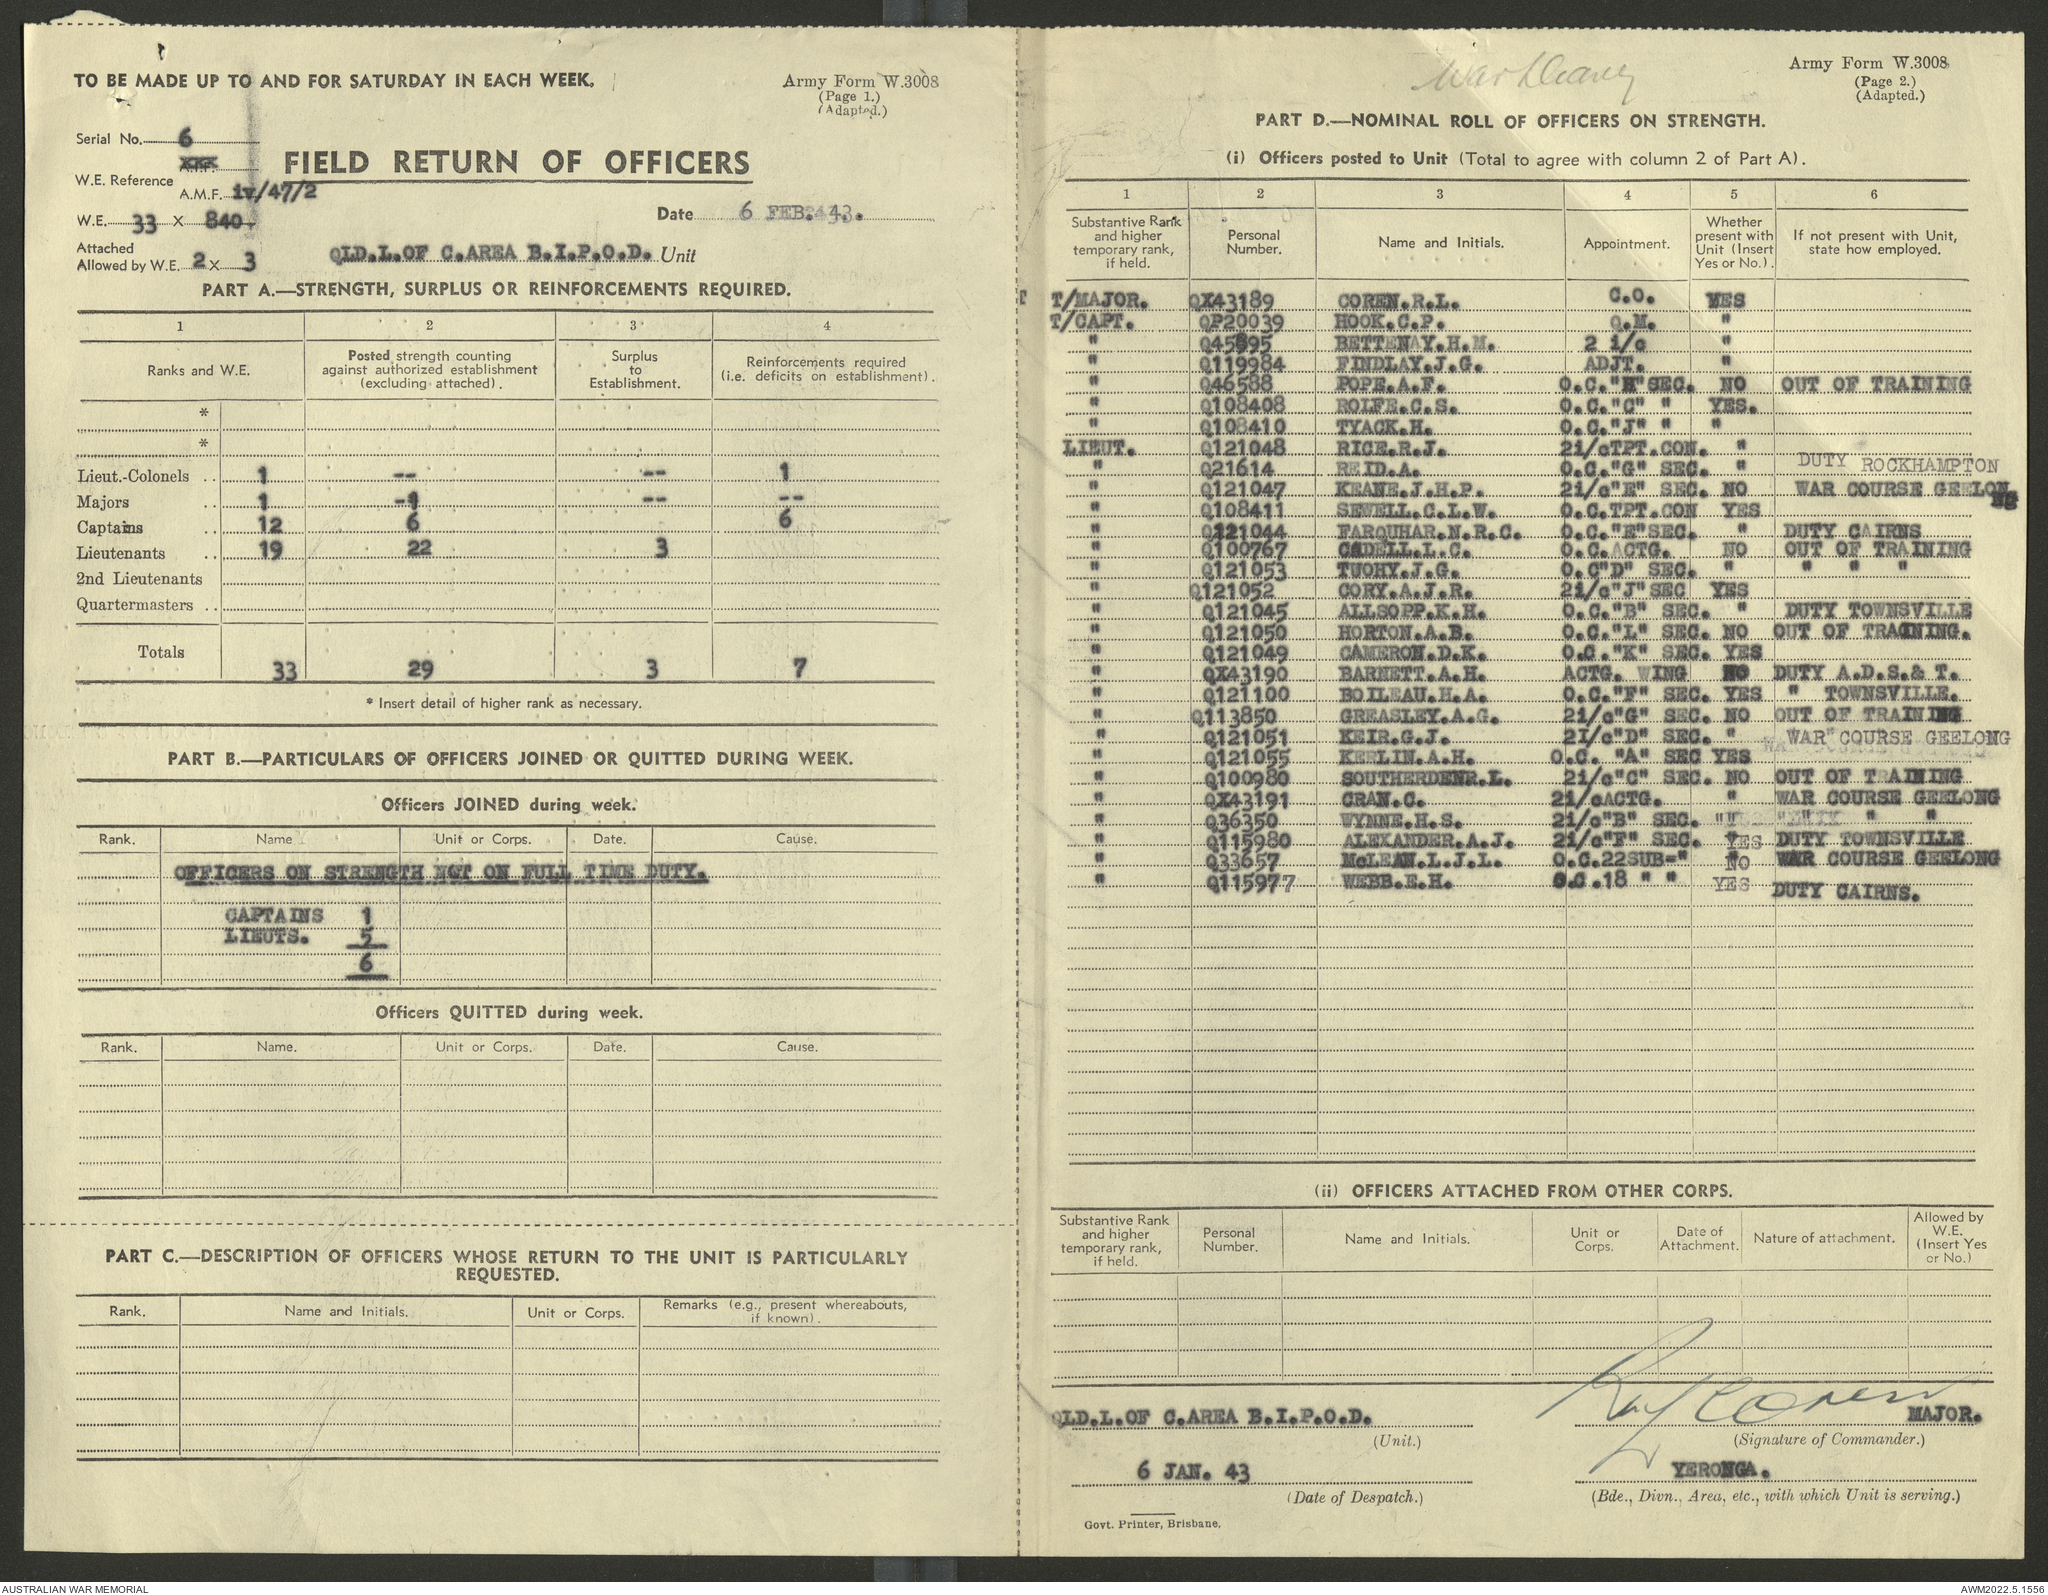 TO BE MADE UP TO AND FOR SATURDAY IN EACH WEEK.
Army Form W.3008
(Page 1.)
(Adapted.)
Serial No. 6
FIELD RETURN OF OFFICERS
W.E. Reference
A.M.F. iv/47/2
W.E. 33 X 840
Date 6 FEB. 43.
Attached
Allowed by W.E. 2 X 3
QLD.L.OF C.AREA B.I.P.O.D. Unit
PART A.—STRENGTH, SURPLUS OR REINFORCEMENTS REQUIRED.
1 2 3 4
Ranks and W.E.
Posted strength counting against authorized establishment (excluding attached).
Surplus to Establishment.
Reinforcements required (i.e. deficits on establishment).
*
*
Lieut.-Colonels .. 1 -- -- 1
Majors .. 1 -1 -- --
Captains .. 12 6 6
Lieutenants .. 19 22 3
2nd Lieutenants
Quartermasters ..
Totals 33 29 3 7
* Insert detail of higher rank as necessary.
PART B.—PARTICULARS OF OFFICERS JOINED OR QUITTED DURING WEEK.
Officers JOINED during week.
Rank. Name Unit or Corps. Date. Cause.
OFFICERS ON STRENGTH NOT ON FULL TIME DUTY.
CAPTAINS 1
LIEUTS. 5
6
Officers QUITTED during week.
Rank. Name. Unit or Corps. Date. Cause.
PART C.—DESCRIPTION OF OFFICERS WHOSE RETURN TO THE UNIT IS PARTICULARLY
REQUESTED.
Rank. Name and Initials. Unit or Corps. Remarks (e.g., present whereabouts, if known).
War Diary
Army Form W.3008
(Page 2.)
(Adapted.)
PART D.—NOMINAL ROLL OF OFFICERS ON STRENGTH.
(i) Officers posted to Unit (Total to agree with column 2 of Part A).
1 2 3 4 5 6
Substantive Rank and higher temporary rank, if held.
Personal Number.
Name and Initials.
Appointment.
Whether present with Unit (Insert Yes or No.).
If not present with Unit, state how employed.
T/MAJOR. QX43189 COREN.R.L. C.O. YES
T/CAPT. QP20039 HOOK.C.P. Q.M. "
" Q45895 BETTENAY.H.M. 2 i/c "
" Q119984 FINDLAY.J.G. ADJT. "
" Q46588 POPE.A.F. O.C."H"SEC. NO OUT OF TRAINING
" Q108408 ROLFE.C.S. O.C."C" " YES.
" Q108410 TYACK.H. O.C."J" " "
LIEUT. Q121048 RICE.R.J. 2i/cTPT.CON. "
" Q21614 REID.A. O.C."G" SEC. " DUTY ROCKHAMPTON
" Q121047 KEANE.J.H.P. 2i/c"E" SEC. NO WAR COURSE GEELONG
" Q108411 SEWELL.C.L.W. O.C.TPT.CON YES
" Q121044 FARQUHAR.N.R.C. O.C."E"SEC. " DUTY CAIRNS
" Q100767 CADELL.L.C. O.C.ACTG. NO OUT OF TRAINING
" Q121053 TUOHY.J.G. O.C"D" SEC. " " " "
" Q121052 CORY.A.J.R. 2i/c"J"SEC YES
" Q121045 ALLSOPP.K.H. O.C."B" SEC. " DUTY TOWNSVILLE
" Q121050 HORTON.A.B. O.C."L" SEC. NO OUT OF TRAINING.
" Q121049 CAMERON.D.K. O.C."K" SEC. YES
" QX43190 BARNETT.A.H. ACTG. WING NO DUTY A.D.S.& T.
" Q121100 BOILEAU.H.A. O.C."F" SEC. YES " TOWNSVILLE.
" Q113850 GREASLEY.A.G. 2i/c"G" SEC. NO OUT OF TRAINING
" Q121051 KEIR.G.J. 2I/c"D" SEC. " WAR COURSE GEELONG
" Q121055 KEELIN.A.H. O.C. "A" SEC YES
" Q100980 SOUTHERDENR.L. 2i/c"C" SEC. NO OUT OF TRAINING
" QX43191 CRAN.C. 2i/cACTG. " WAR COURSE GEELONG
" Q36350 WYNNE.H.S. 2i/c"B" SEC. " " " "
" Q115980 ALEXANDER.A.J. 2i/c"F" SEC. YES DUTY TOWNSVILLE
" Q33657 McLEAN.L.J.L. O.C.22SUB=" NO WAR COURSE GEELONG
" Q115977 WEBB.E.H. O.C.18 " " YES DUTY CAIRNS.
(ii) OFFICERS ATTACHED FROM OTHER CORPS.
Substantive Rank and higher temporary rank, if held.
Personal Number.
Name and Initials.
Unit or Corps.
Date of Attachment.
Nature of attachment.
Allowed by W.E. (Insert Yes or No.)
QLD.L.OF C.AREA B.I.P.O.D.
(Unit.)
Ray Coren MAJOR.
(Signature of Commander.)
6 JAN. 43
(Date of Despatch.)
YERONGA.
(Bde., Divn., Area, etc., with which Unit is serving.)
Govt. Printer, Brisbane.
AUSTRALIAN WAR MEMORIAL
AWM2022.5.1556